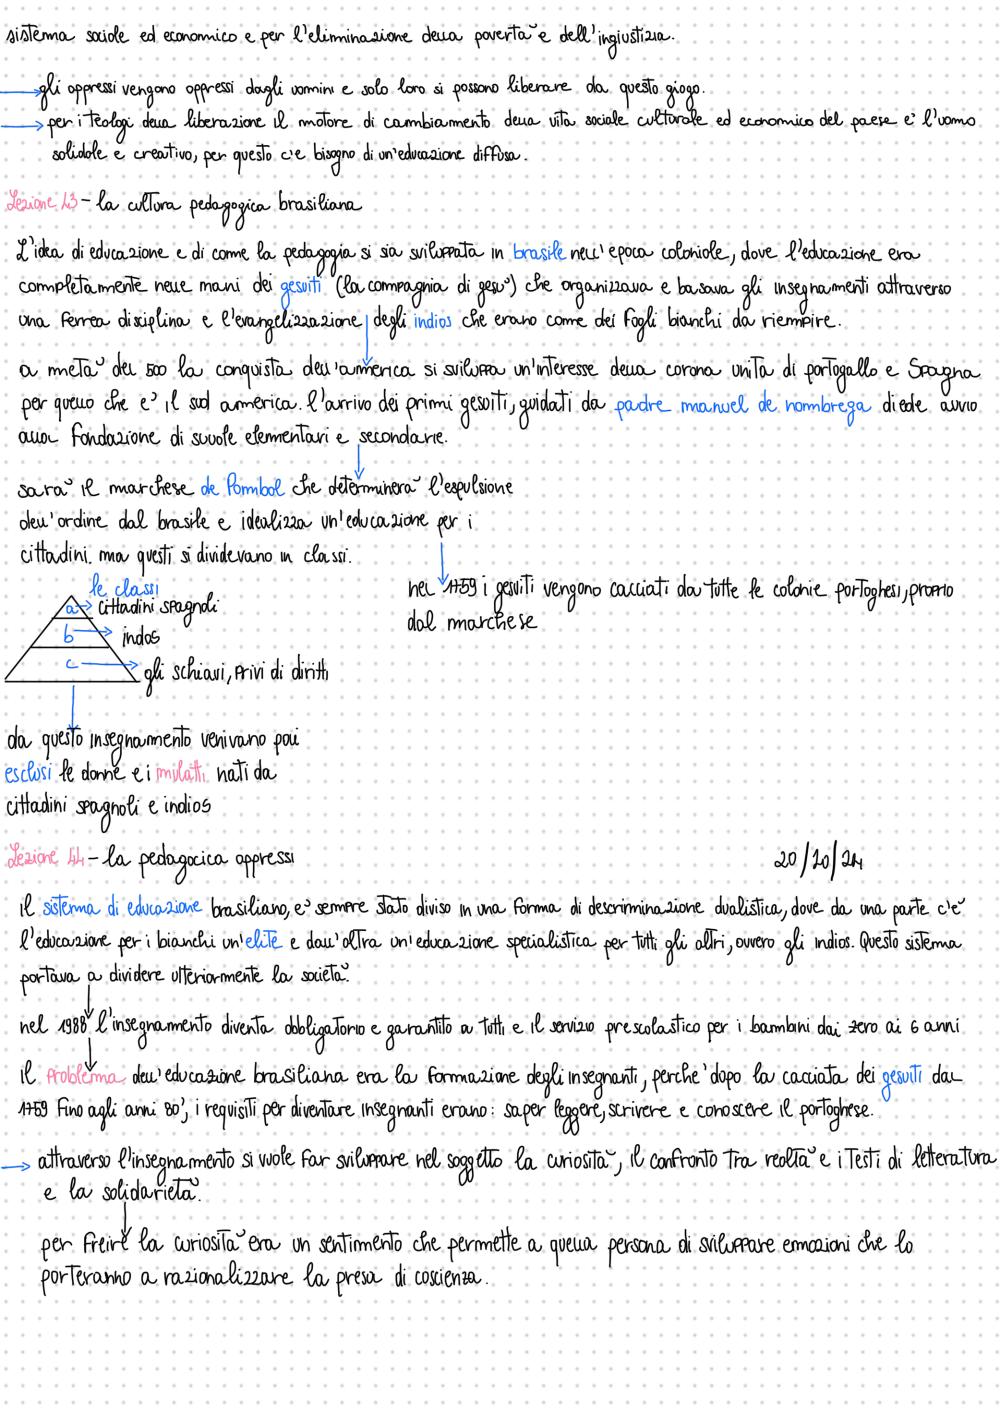 sistema sociale ed economico e per l'eliminazione della poverta' e dell'ingiustizia.
gli oppressi vengono oppressi dagli uomini e solo loro si possono liberare da questo giogo.
per i Teologi della liberazione il motore di cambiamento della vita sociale culturale ed economico del paese e' l'uomo
solidale e creativo, per questo c'e bisogno di un'educazione diffusa.
Lezione 43 - la cultura pedagogica brasiliana
L'idea di educazione e di come la pedagogia si sia sviluppata in brasile nell'epoca coloniale, dove l'educazione era
completamente nelle mani dei gesuiti (la compagnia di gesu') che organizzava e basava gli insegnamenti attraverso
una ferrea disciplina e l'evangelizzazione degli indios che erano come dei fogli bianchi da riempire.
a meta' del 500 la conquista dell'america si sviluppa un'interesse della corona unita di portogallo e Spagna
per quello che e' il sud america. l'arrivo dei primi gesuiti, guidati da padre manuel de nombrega diede avvio
alla fondazione di scuole elementari e secondarie.
sara' il marchese de Pombol che determinera' l'espulsione
dell'ordine dal brasile e idealizza un'educazione per i
cittadini. ma questi si dividevano in classi.
le classi
a → cittadini spagnoli
b → indos
c → gli schiavi, privi di diritti
nel 1759 i gesuiti vengono cacciati da tutte le colonie portoghesi, proprio
dal marchese
da questo insegnamento venivano poi
esclusi le donne e i mulatti nati da
cittadini spagnoli e indios
Lezione 44 - la pedagocica oppressi
20/10/24
il sistema di educazione brasiliano, e' sempre stato diviso in una forma di descriminazione dualistica, dove da una parte c'e'
l'educazione per i bianchi un'elite e dall'altra un'educazione specialistica per tutti gli altri, ovvero gli indios. Questo sistema
portava a dividere ulteriormente la societa'.
nel 1988 l'insegnamento diventa obbligatorio e garantito a tutti e il servizio prescolastico per i bambini dai zero ai 6 anni
il problema dell'educazione brasiliana era la formazione degli insegnanti, perche' dopo la cacciata dei gesuiti dal
1759 fino agli anni 80', i requisiti per diventare insegnanti erano: saper leggere, scrivere e conoscere il portoghese.
attraverso l'insegnamento si vuole far sviluppare nel soggetto la curiosita', il confronto tra realta' e i Testi di letteratura
e la solidarieta'.
per freire la curiosita' era un sentimento che permette a quella persona di sviluppare emozioni che lo
porteranno a razionalizzare la presa di coscienza.